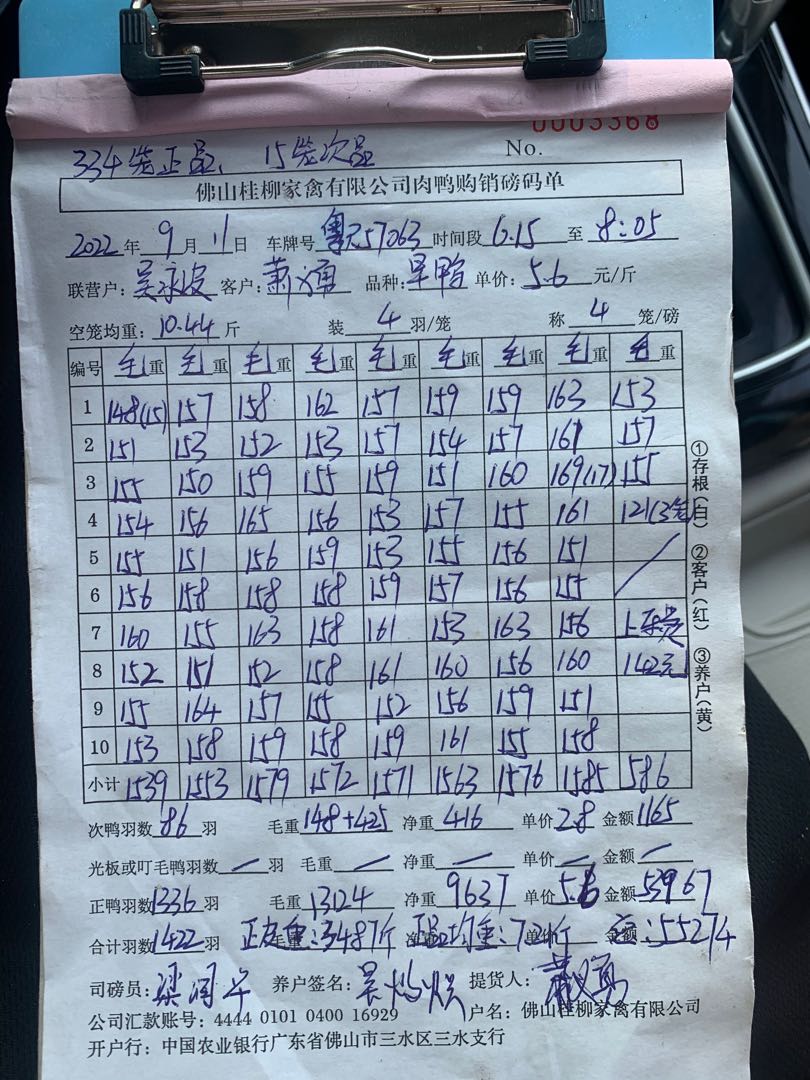 0003368
334笼正品、15笼次品 No.
佛山桂柳家禽有限公司肉鸭购销磅码单
2022年 9月 11日 车牌号 粤 57063 时间段 6.15 至 8:05
联营户: 吴永波 客户: 萧勇 品种: 旱鸭 单价: 5.6 元/斤
空笼均重: 10.44 斤 装 4 羽/笼 称 4 笼/磅
编号 毛重 毛重 毛重 毛重 毛重 毛重 毛重 毛重 毛重
1 148(15) 157 158 162 157 159 159 163 153
2 151 153 152 153 157 154 157 161 157
3 155 150 159 155 159 151 160 169(17) 155
4 154 156 165 156 153 157 155 161 121(3笼)
5 155 151 156 159 153 155 156 151
6 156 158 158 158 159 157 156 155
7 160 155 163 158 161 153 163 156 上车费
8 152 151 152 158 161 160 156 160 142元
9 155 164 157 155 152 156 159 151
10 153 158 159 158 159 161 155 158
小计 1539 1553 1579 1572 1571 1563 1576 1585 586
①存根(白) ②客户(红) ③养户(黄)
次鸭羽数 86 羽 毛重 148+425 净重 416 单价 2.8 金额 1165
光板或叮毛鸭羽数 / 羽 毛重 / 净重 / 单价 / 金额 /
正鸭羽数 1336 羽 毛重 13124 净重 9637 单价 5.6 金额 53967
合计羽数 1422 羽 正皮重:3487斤 正品均重:7.21斤 金额:55274
司磅员: 梁润 养户签名: 吴 提货人: 萧勇
公司汇款账号: 4444 0101 0400 16929 户名: 佛山桂柳家禽有限公司
开户行: 中国农业银行广东省佛山市三水区三水支行